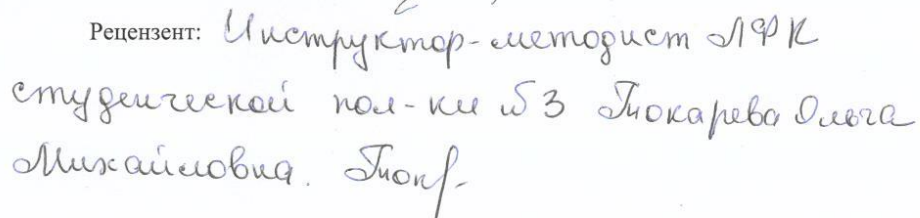 Рецензент: Инструктор-методист ЛФК
студенческой пол-ки №3 Токарева Ольга
Михайловна. Ток